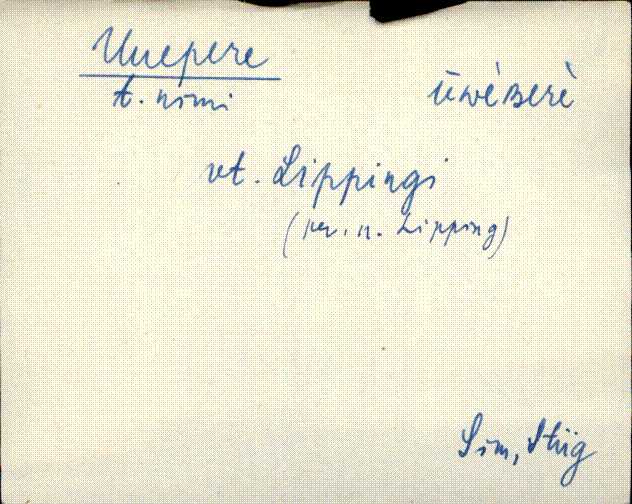 Uuepere
t. nimi ūwèʙerè
vt. Lippingi
(per. n. Lipping)
Sim, Stüg